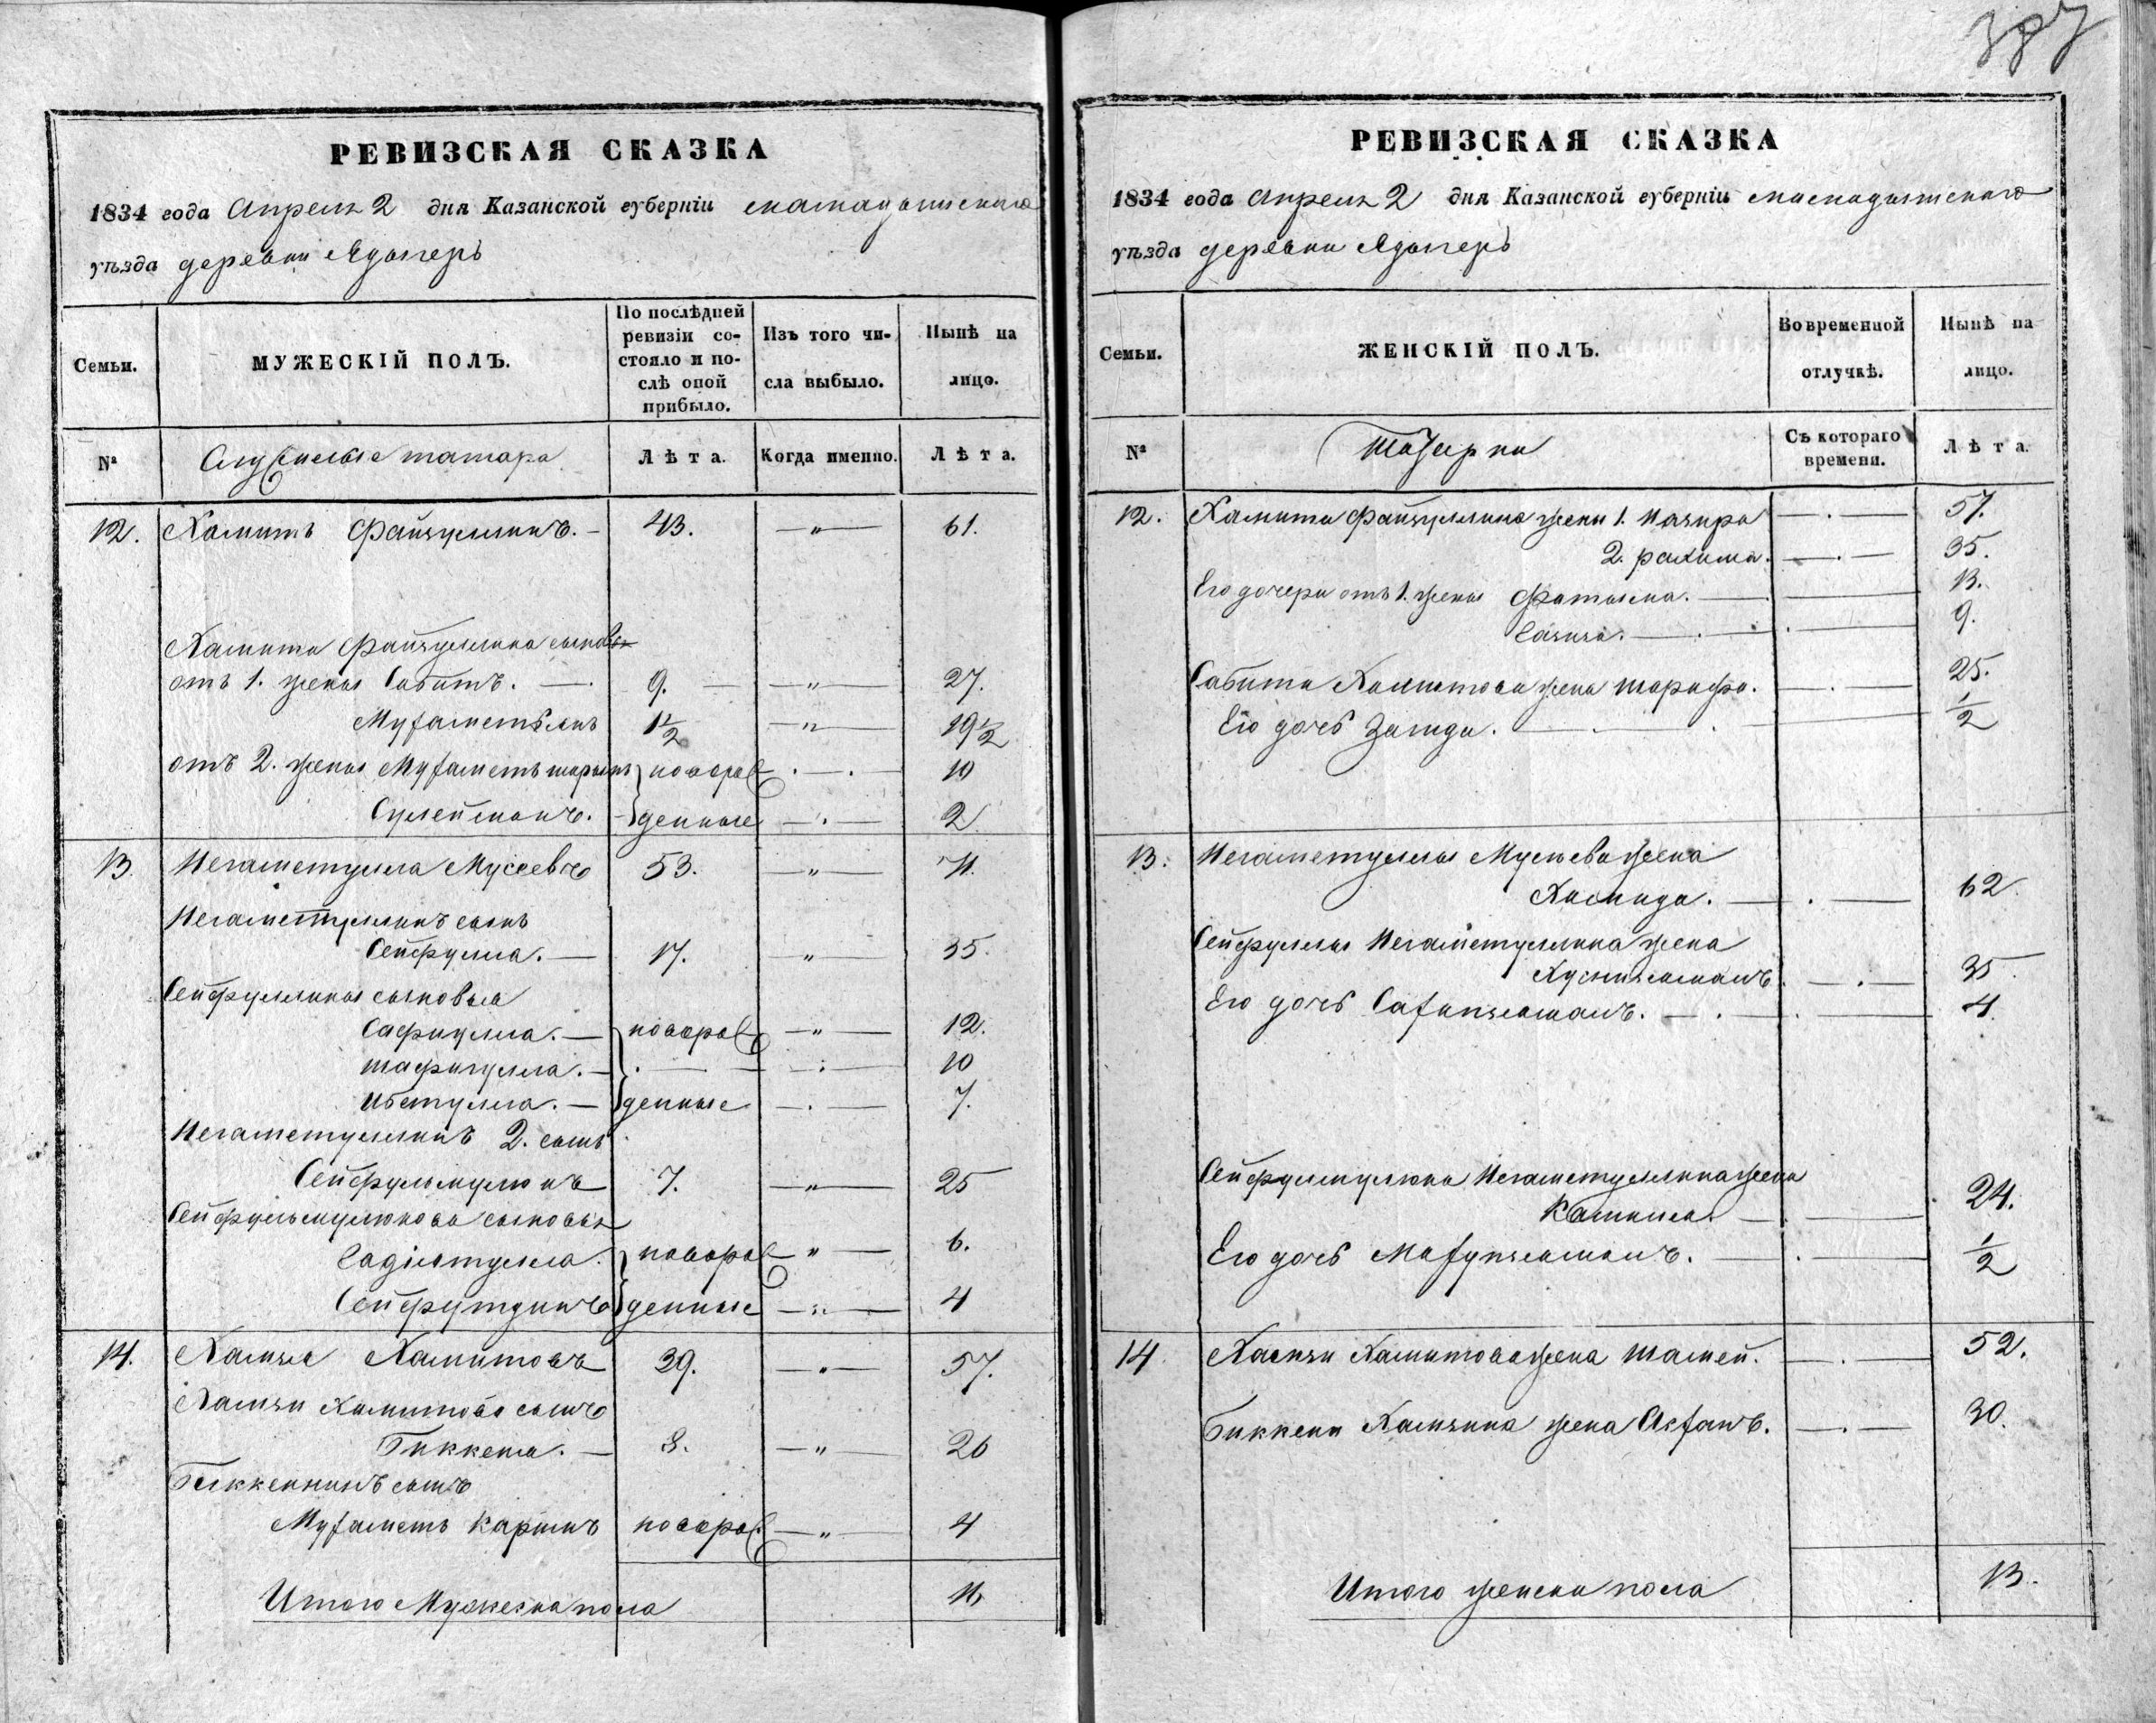 387
РЕВИЗСКАЯ СКАЗКА
1834 года Апреля 2 дня Казанской губерніи мамадышскаго
уѣзда деревни Ядыгеръ
Семьи.
МУЖЕСКІЙ ПОЛЪ.
По послѣдней ревизіи состояло и послѣ оной прибыло.
Изъ того числа выбыло.
Нынѣ на лицо.
№
Служилые татара
Лѣта.
Когда именно.
Лѣта.
12. Хамитъ Файзуллинъ. 43. — „ — 61.
Хамита Файзуллина сыновья
отъ 1. жены Сабитъ. — 9. — „ — 27.
Мухаметъянъ 1½ — „ — 19½
отъ 2. жены Мухаметъшарыпъ новорож — . — 10
Сулейманъ. денные — . — 2
13 Негаметулла Мусеевъ 53. — „ — 71.
Негаметуллинъ сынъ
Сейфулла. — 17. — „ — 35.
Сейфуллины сыновья
Сафиулла. — новорож — „ — 12.
шафигулла. — . — 10
Ибетулла. — денные — . — 7.
Негаметуллинъ 2. сынъ
Сейфульмулюкъ 7. — „ — 25
Сейфульмулюкова сыновья
Садіятулла. новорож — „ — 6.
Сейфутдинъ денные — „ — 4
14. Хамзя Хамитовъ 39. — „ — 57.
Хамзи Хамитова сынъ
Биккеня. — 8. — „ — 26
Биккенинъ сынъ
Мухаметъ Каримъ новорож. — „ — 4
Итого Мужеска пола 16
РЕВИЗСКАЯ СКАЗКА
1834 года Апреля 2 дня Казанской губерніи мамадышскаго
уѣзда деревни Ядыгеръ
Семьи.
ЖЕНСКІЙ ПОЛЪ.
Во временной отлучкѣ.
Нынѣ на лицо.
№
Татарки
Съ котораго времени.
Лѣта.
12. Хамита Файзуллина жены 1. Назира — . — 57.
2. рахима. — . — 35.
Его дочери отъ 1. жены Фатыма. — 13.
Сазиза. — . — 9.
Сабита Хамитова жена шарифа. — . — 25.
Его дочь Загида. — . — ½
13. Негаметуллы Мусеева жена
Хамида. — . — 62
Сейфуллы Негаметуллина жена
Хуснизяманъ — . — 35.
Его дочь Сахипзяманъ. — . — 4.
Сейфулмулюка Негаметуллина жена
Камиля. — 24.
Его дочь Махупзяманъ. — ½
14 Хамзи Хамитова жена шамей. — . — 52.
Биккени Хамзина жена Асханъ. — . — 30.
Итого женска пола 13.